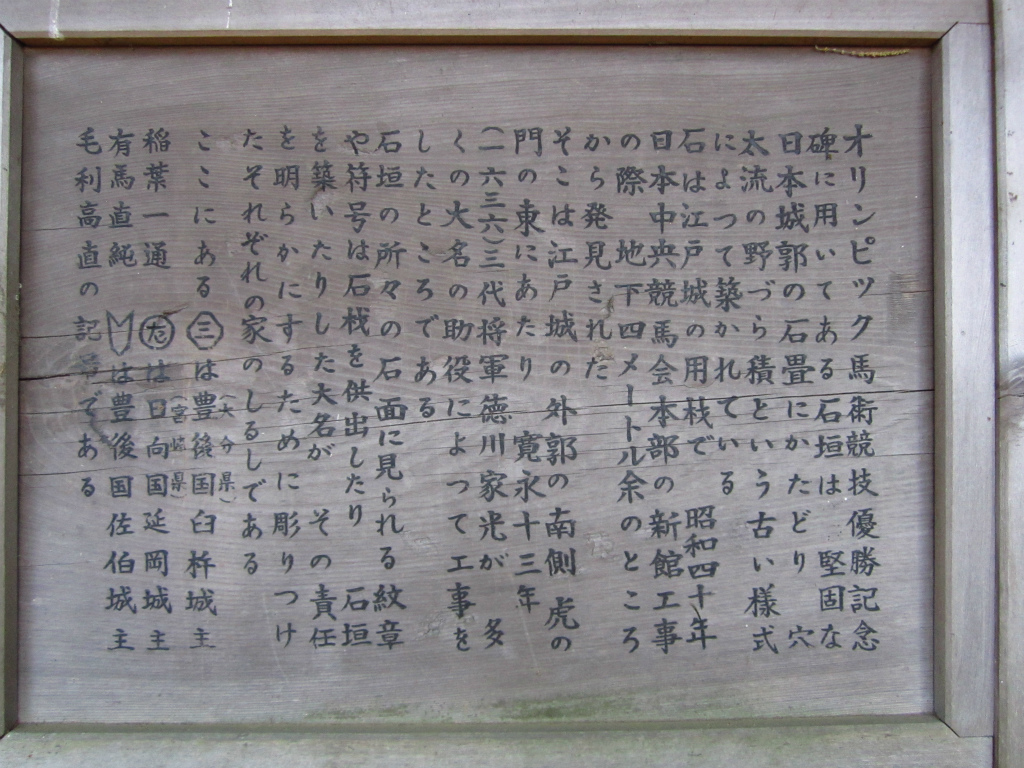 オリンピック馬術競技優勝記念
碑に用いてある石垣は堅固な
日本城郭の石畳にかたどり穴
太流の野づら積という古い様式
によって築かれている
石は江戸城の用栈で 昭和四十年
日本中央競馬会本部の新館工事
の際 地下四メートル余のところ
から発見された
そこは江戸城の 外郭の南側 虎の
門の東にあたり 寛永十三年
(一六三六)三代将軍徳川家光が 多
くの大名の助役によって工事を
したところである
石垣の所々の石面に見られる紋章
や符号は石栈を供出したり 石垣
を築いたりした大名が その責任
を明らかにするために彫りつけ
たそれぞれの家のしるしである
ここにある 三 は豊後国臼杵城主
(大分県)
稲葉一通 は日向国延岡城主
(宮崎県)
有馬直純 は豊後国佐伯城主
毛利高直の記号である